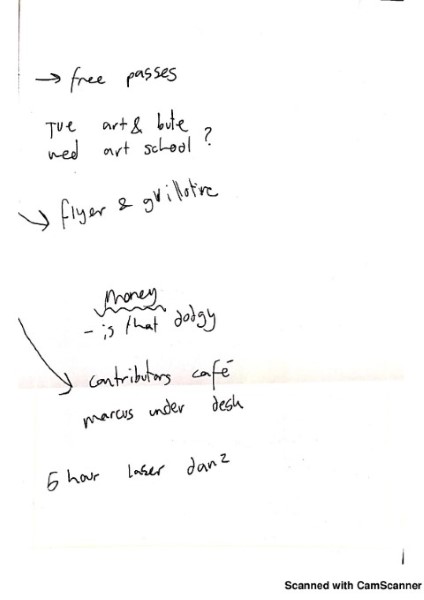 → free passes
TUE art & bute
wed art school ?
→ flyer & guillotine
Money
- is that dodgy
→ contributors café
marcus under desk
5 hour laser dan²
Scanned with CamScanner